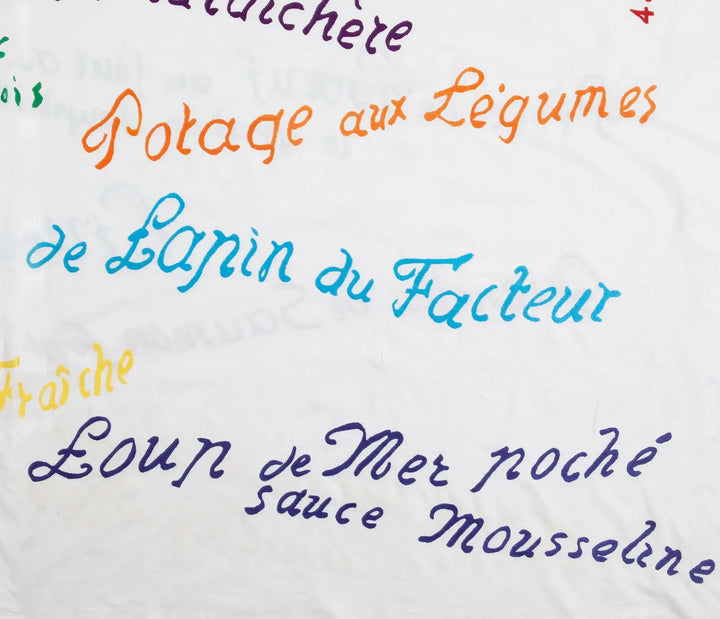 Potage aux Légumes
de Lapin du Facteur
Fraîche
Loup de Mer poché
sauce Mousseline